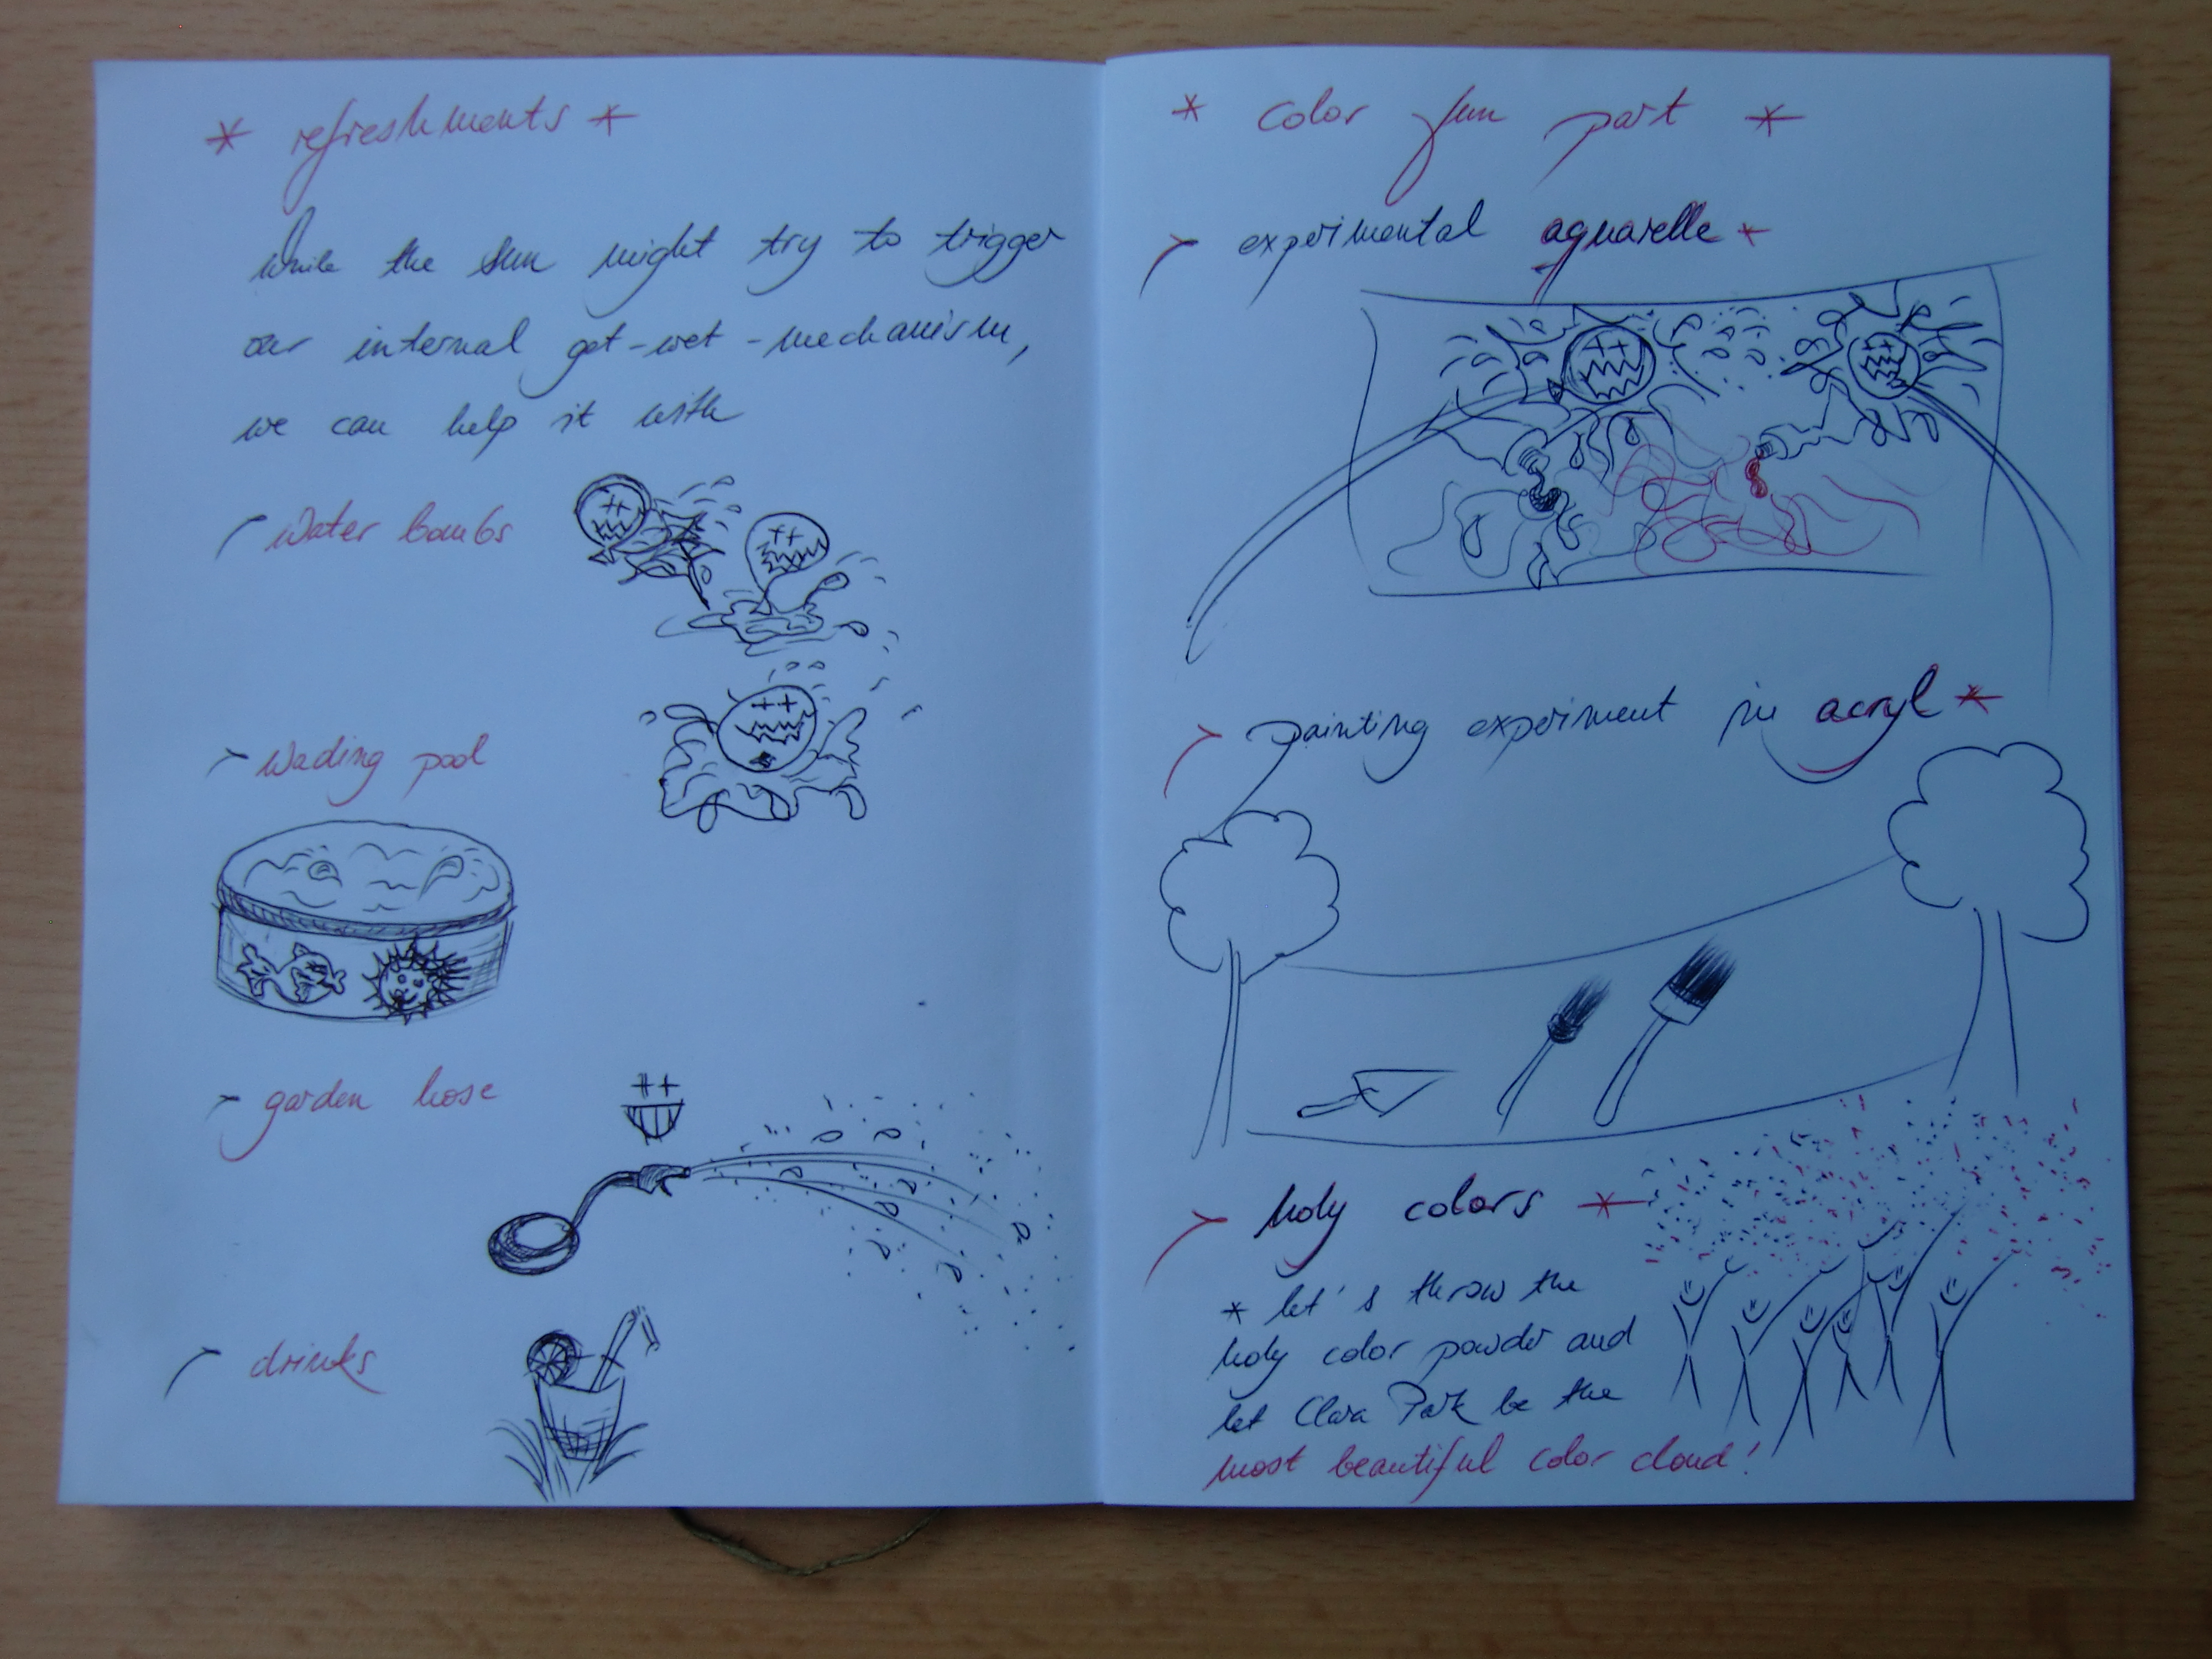 * refreshments *
while the sun might try to trigger
our internal get-wet-mechanism,
we can help it with
water bombs
wading pool
garden hose
drinks
* color fun part *
experimental aquarelle *
painting experiment in acryl *
holy colors *
* let's throw the
holy color powder and
let Clara Park be the
most beautiful color cloud!